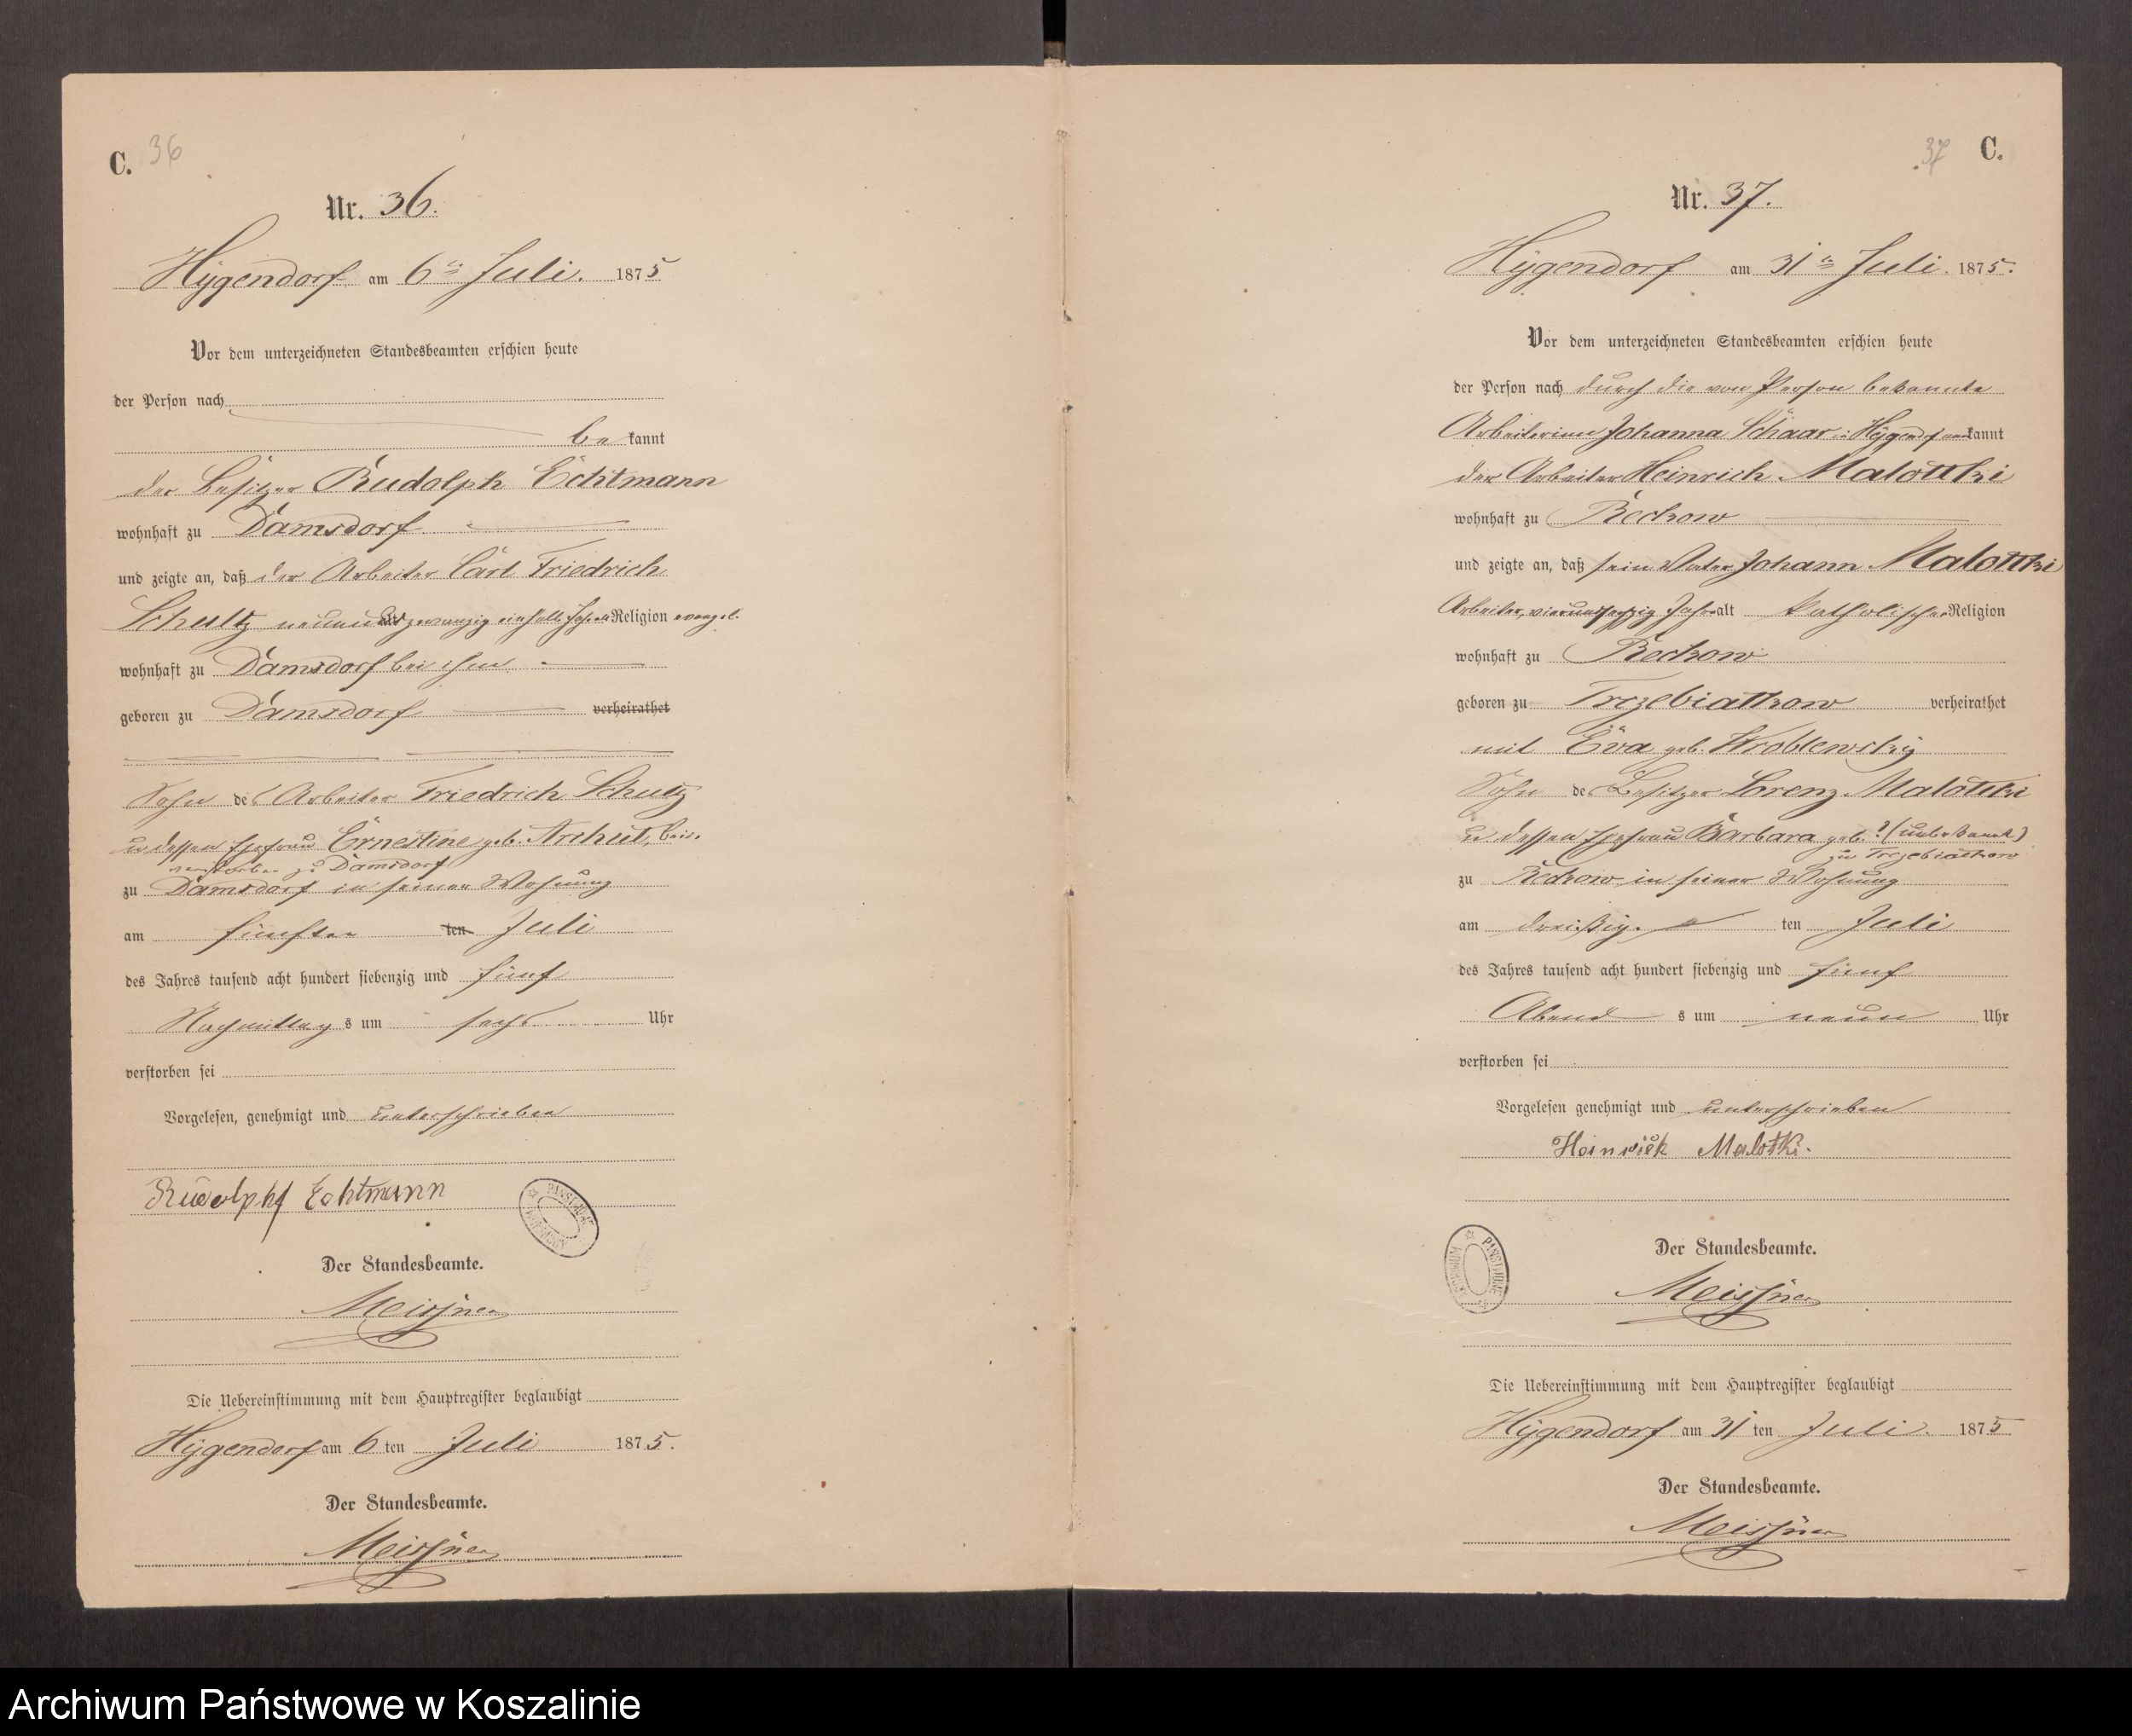 C. 36
Nr. 36.
Hygendorf am 6ten Juli. 1875
Vor dem unterzeichneten Standesbeamten erschien heute
der Person nach
bekannt
der Besitzer Rudolph Echtmann
wohnhaft zu Damsdorf
und zeigte an, daß der Arbeiter Carl Friedrich
Schultz neunundzwanzig einhalb Jahr alt Religion evangel.
wohnhaft zu Damsdorf bei ihm
geboren zu Damsdorf verheirathet
Sohn des Arbeiter Friedrich Schultz
u dessen Ehefrau Ernestine geb. Archut, beide
verstorben zu Damsdorf
zu Damsdorf in seiner Wohnung
am fünften ten Juli
des Jahres tausend acht hundert siebenzig und fünf
Nachmittags um sechs Uhr
verstorben sei
Vorgelesen, genehmigt und unterschrieben
Rudolph Echtmann
ARCHIWUM PAŃSTWOWE
Der Standesbeamte.
Meissner
Die Uebereinstimmung mit dem Hauptregister beglaubigt
Hygendorf am 6 ten Juli 1875.
Der Standesbeamte.
Meissner
37 C.
Nr. 37.
Hygendorf am 31ten Juli. 1875.
Vor dem unterzeichneten Standesbeamten erschien heute
der Person nach durch die von Person bekannte
Arbeiterinn Johanna Schaar in Hygendf anerkannt
der Arbeiter Heinrich Malottki
wohnhaft zu Reckow
und zeigte an, daß sein Vater Johann Malottki
Arbeiter, vierundsechzig Jahr alt katholischer Religion
wohnhaft zu Reckow
geboren zu Trzebiatkow verheirathet
mit Eva geb. Wroblewsky
Sohn des Besitzer Lorenz Malottki
u dessen Ehefrau Barbara geb. ? (unbekannt)
zu Trzebiatkow
zu Reckow in seiner Wohnung
am dreißig. ten Juli
des Jahres tausend acht hundert siebenzig und fünf
Abends um neun Uhr
verstorben sei
Vorgelesen genehmigt und unterschrieben
Heinrich Malotki.
ARCHIWUM PAŃSTWOWE
Der Standesbeamte.
Meissner
Die Uebereinstimmung mit dem Hauptregister beglaubigt
Hygendorf am 31 ten Juli. 1875
Der Standesbeamte.
Meissner
Archiwum Państwowe w Koszalinie